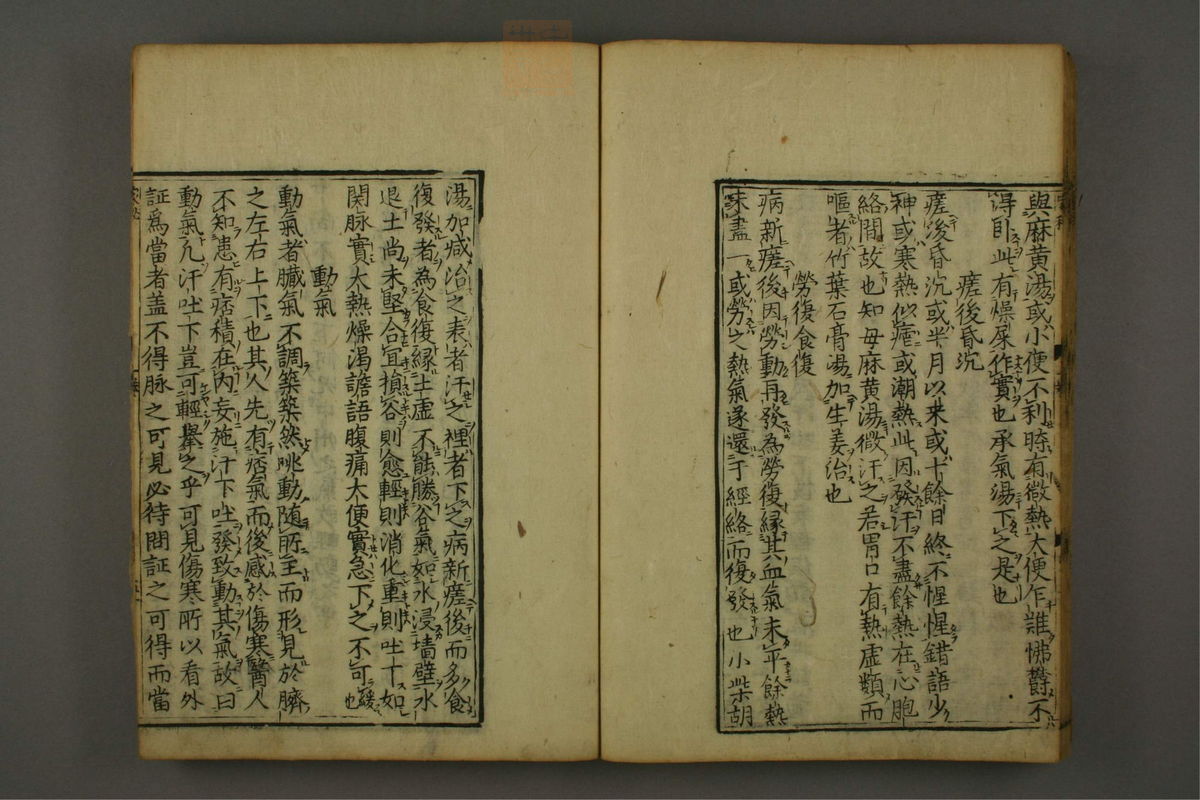 與麻黄湯或小便不利時有微熱大便乍難怫欝不
得卧此有燥屎作實也承氣湯下之是也
瘥後昏沉
瘥後昏沉或半月以来或十餘日終不惺惺錯語少
神或寒熱似瘧或潮熱此因發汗不盡餘熱在心胞
絡間故也知母麻黄湯微汗之若胃口有熱虚類而
嘔者竹葉石膏湯加生姜治也
勞復食復
病新瘥後因勞動再發為勞復縁其血氣未平餘熱
未盡一或勞之熱氣遂還于經絡而復發也小柴胡
湯加减治之表者汗之裡者下之病新瘥後而多食
復發者為食復縁土虚不能勝谷氣如水浸墻壁水
退土尚未堅合宜損谷則愈輕則消化重則吐下如
関脉實大熱燥渴譫語腹痛大便實急下之不可緩也
動氣
動氣者臓氣不調築築然跳動随所主而形見於臍
之左右上下也其人先有痞氣而後感於傷寒醫人
不知患有痞積在内妄施汗下吐發致動其氣故曰
動氣凡汗吐下豈可輕擧之乎可見傷寒所以看外
証為當者盖不得脉之可見必待問証之可得而當